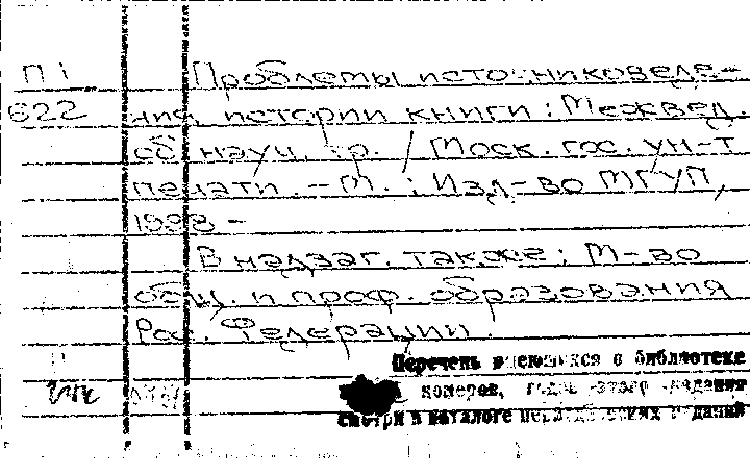 П1 Проблемы источниковеде-
622 ния истории книги: Межвед.
сб. науч. тр. / Моск. гос. ун-т
печати. - М.: Изд-во МГУП,
1998 -
В надзаг. также: М-во
общ. и проф. образования
Рос. Федерации.
Перечень имеющихся в библиотеке
номеров, годов этого издания
смотри в каталоге периодических изданий